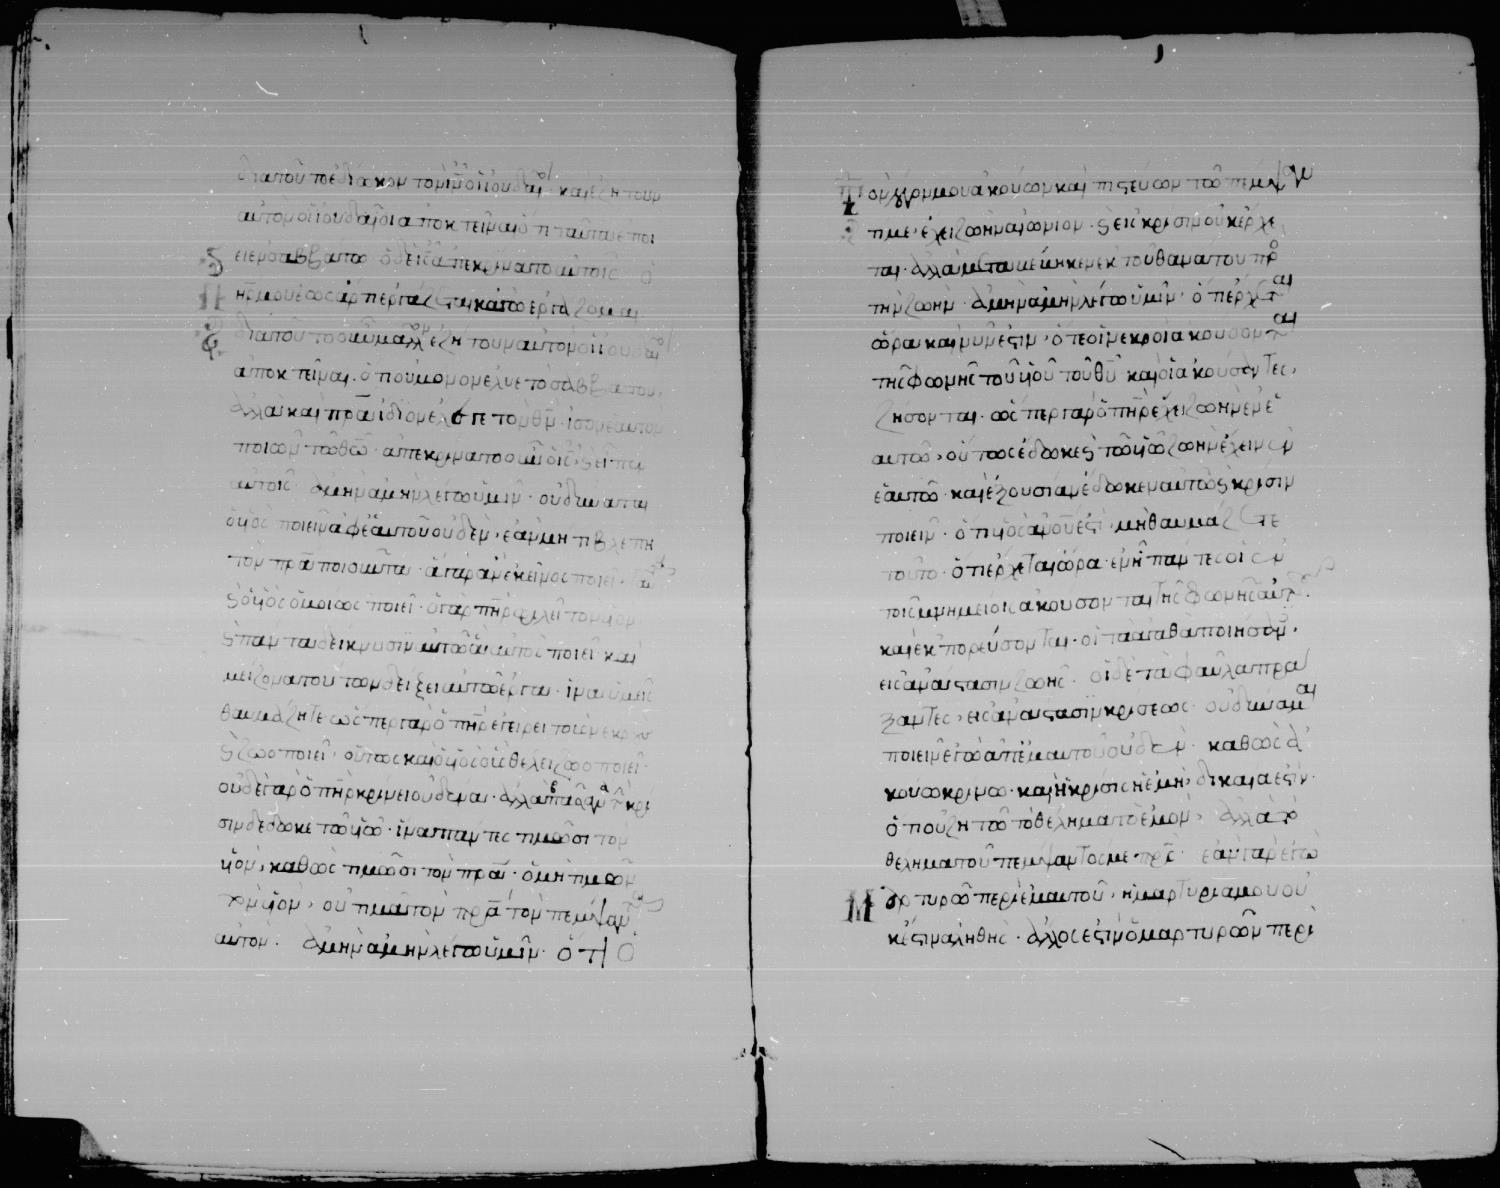 διατοῦτο ἐδίωκον τὸν ιν̅ οἱ ἰουδαῖοι καὶ ἐζήτουν
αὐτὸν οἱ ἰουδαῖοι ἀποκτεῖναι ὅτι ταῦτα ἐποί
ει ἐν σαββάτω ὁ δὲ ις̅ ἀπεκρίνατο αὐτοῖς ὁ
πη̅ρ μου ἕως ἄρτι ἐργάζεται κἀγὼ ἐργάζομαι
διατοῦτο οὖν μᾶλλον ἐζήτουν αὐτὸν οἱ ἰουδαῖοι
ἀποκτεῖναι· ὅτι οὐ μόνον ἔλυε τὸ σάββατον,
ἀλλὰ καὶ πρ̅α ἴδιον ἔλεγε τὸν θν̅· ἴσον ἑαυτὸν
ποιῶν τῶ θω̅· ἀπεκρίνατο οὖν ὁ ις̅ ϗ εἶπεν
αὐτοῖς· ἀμὴν ἀμὴν λέγω ὑμῖν· οὐ δύναται
ὁ υἱὸς ποιεῖν ἀφ' ἑαυτοῦ οὐδὲν, ἐὰν μή τι βλέπη
τὸν πρ̅α ποιοῦντα· ἃ γὰρ ἂν ἐκεῖνος ποιεῖ· ταῦτα
ϗ ὁ υἱὸς ὁμοίως ποιεῖ· ὁ γὰρ πη̅ρ φιλεῖ τὸν υἱὸν
ϗ πάντα δείκνυσιν αὐτῶ ἃ αὐτὸς ποιεῖ· καὶ
μείζονα τούτων δείξει αὐτῶ ἔργα· ἵνα ὑμεῖς
θαυμάζητε· ὥσπερ γὰρ ὁ πη̅ρ ἐγείρει τοὺς νεκροὺς
ϗ ζωοποιεῖ· οὕτως καὶ ὁ υἱὸς οὓς θέλει ζωοποιεῖ·
οὐδὲ γὰρ ὁ πη̅ρ κρίνει οὐδένα· ἀλλὰ πᾶσαν τὴν κρί
σιν δέδωκε τῶ υἱῶ· ἵνα πάντες τιμῶσι τὸν
υἱὸν, καθὼς τιμῶσι τὸν πρ̅α· ὁ μὴ τιμῶν
τὸν υἱὸν, οὐ τιμᾶ τὸν πρ̅α τὸν πέμψαντα
αὐτόν. ἀμὴν ἀμὴν λέγω ὑμῖν· ὅτι ὁ
τὸν λόγον μου ἀκούων καὶ πιστεύων τῶ πέμψαν
τι με· ἔχει ζωὴν αἰώνιον· ϗ εἰς κρίσιν οὐκ ἔρχε
ται· ἀλλὰ μεταβέβηκεν ἐκ τοῦ θανάτου πρὸς
τὴν ζωήν· ἀμὴν ἀμὴν λέγω ὑμῖν· ὅτι ἔρχεται
ὥρα καὶ νῦν ἐστιν· ὅτε οἱ νεκροὶ ἀκούσονται
τῆς φωνῆς τοῦ υἱοῦ τοῦ θυ̅ καὶ οἱ ἀκούσαντες,
ζήσονται· ὥσπερ γὰρ ὁ πη̅ρ ἔχει ζωὴν ἐν ἑ
αυτῶ, οὕτως ἔδωκε ϗ τῶ υἱῶ ζωὴν ἔχειν ἐν
ἑαυτῶ· καὶ ἐξουσίαν ἔδωκεν αὐτῶ ϗ κρίσιν
ποιεῖν· ὅτι υἱὸς ἀν̅ου ἐστί· μὴ θαυμάζετε
τοῦτο· ὅτι ἔρχεται ὥρα· ἐν ἧ πάντες οἱ ἐν
τοῖς μνημείοις ἀκούσονται τῆς φωνῆς αὐτοῦ·
καὶ ἐκπορεύσονται· οἱ τὰ ἀγαθὰ ποιήσαντες,
εἰς ἀνάστασιν ζωῆς· οἱ δὲ τὰ φαῦλα πρά
ξαντες, εἰς ἀνάστασιν κρίσεως· οὐ δύναμαι
ποιεῖν ἐγὼ ἀπ' ἐμαυτοῦ οὐδέν· καθὼς ἀ
κούω κρίνω· καὶ ἡ κρίσις ἡ ἐμὴ, δικαία ἐστίν·
ὅτι οὐ ζητῶ τὸ θέλημα τὸ ἐμὸν· ἀλλὰ τὸ
θέλημα τοῦ πέμψαντός με πρ̅ς· ἐὰν ἐγὼ
μαρτυρῶ περὶ ἐμαυτοῦ, ἡ μαρτυρία μου οὐ
κ ἔστιν ἀληθής· ἄλλος ἐστὶν ὁ μαρτυρῶν περὶ